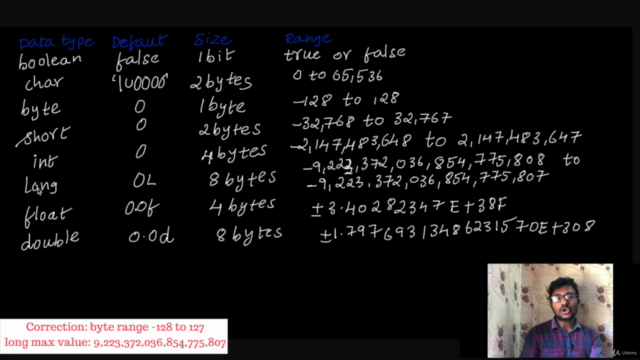 Data type Default Size Range
boolean false 1 bit true or false
char '\u0000' 2 bytes 0 to 65,536
byte 0 1 byte -128 to 128
short 0 2 bytes -32,768 to 32,767
int 0 4 bytes -2,147,483,648 to 2,147,483,647
long 0L 8 bytes -9,223,372,036,854,775,808 to
-9,223,372,036,854,775,807
float 0.0f 4 bytes ±3.40282347E+38F
double 0.0d 8 bytes ±1.79769313486231570E+308
Correction: byte range -128 to 127
long max value: 9,223,372,036,854,775,807
Udemy